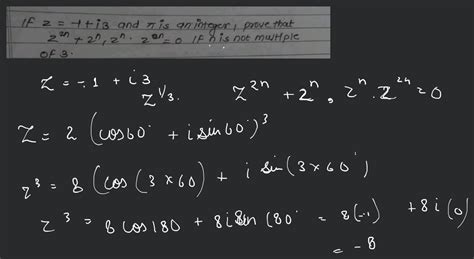 If z = -1+i3 and n is an integer, prove that
z²ⁿ + 2ⁿ, zⁿ. z²ⁿ = 0 If n is not multiple
of 3.
Z = -1 + i3
Z^1/3.
Z²ⁿ + 2ⁿ, zⁿ. Z²ⁿ = 0
Z = 2 (cos60° + i sin60°)³
z³ = 8 (cos (3×60) + i sin (3×60°)
Z³ = 8 cos 180 + 8 i sin 180° = 8(-1) + 8i (0)
= -8